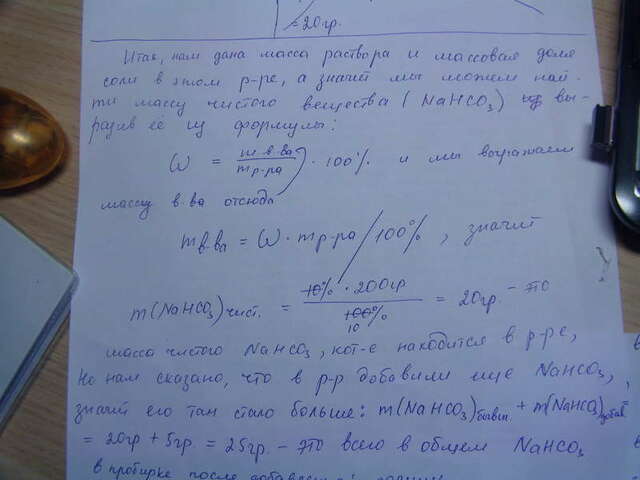 = 20гр.
Итак, нам дана масса раствора и массовая доля
соли в этом р-ре, а значит мы можем най-
ти массу чистого вещества (NaHCO3) вы-
разив её из формулы:
ω = m в-ва / m р-ра · 100% и мы выражаем
массу в-ва отсюда
m в-ва = ω · m р-ра / 100%, значит
m(NaHCO3) чист. = 10% · 200гр / 100% 10 = 20гр. - это
масса чистого NaHCO3, кот-е находится в р-ре,
Но нам сказано, что в р-р добавили еще NaHCO3,
значит его там стало больше: m(NaHCO3) + m(NaHCO3)
= 20гр + 5гр. = 25гр. - это всего в общем NaHCO3
в пробирке после